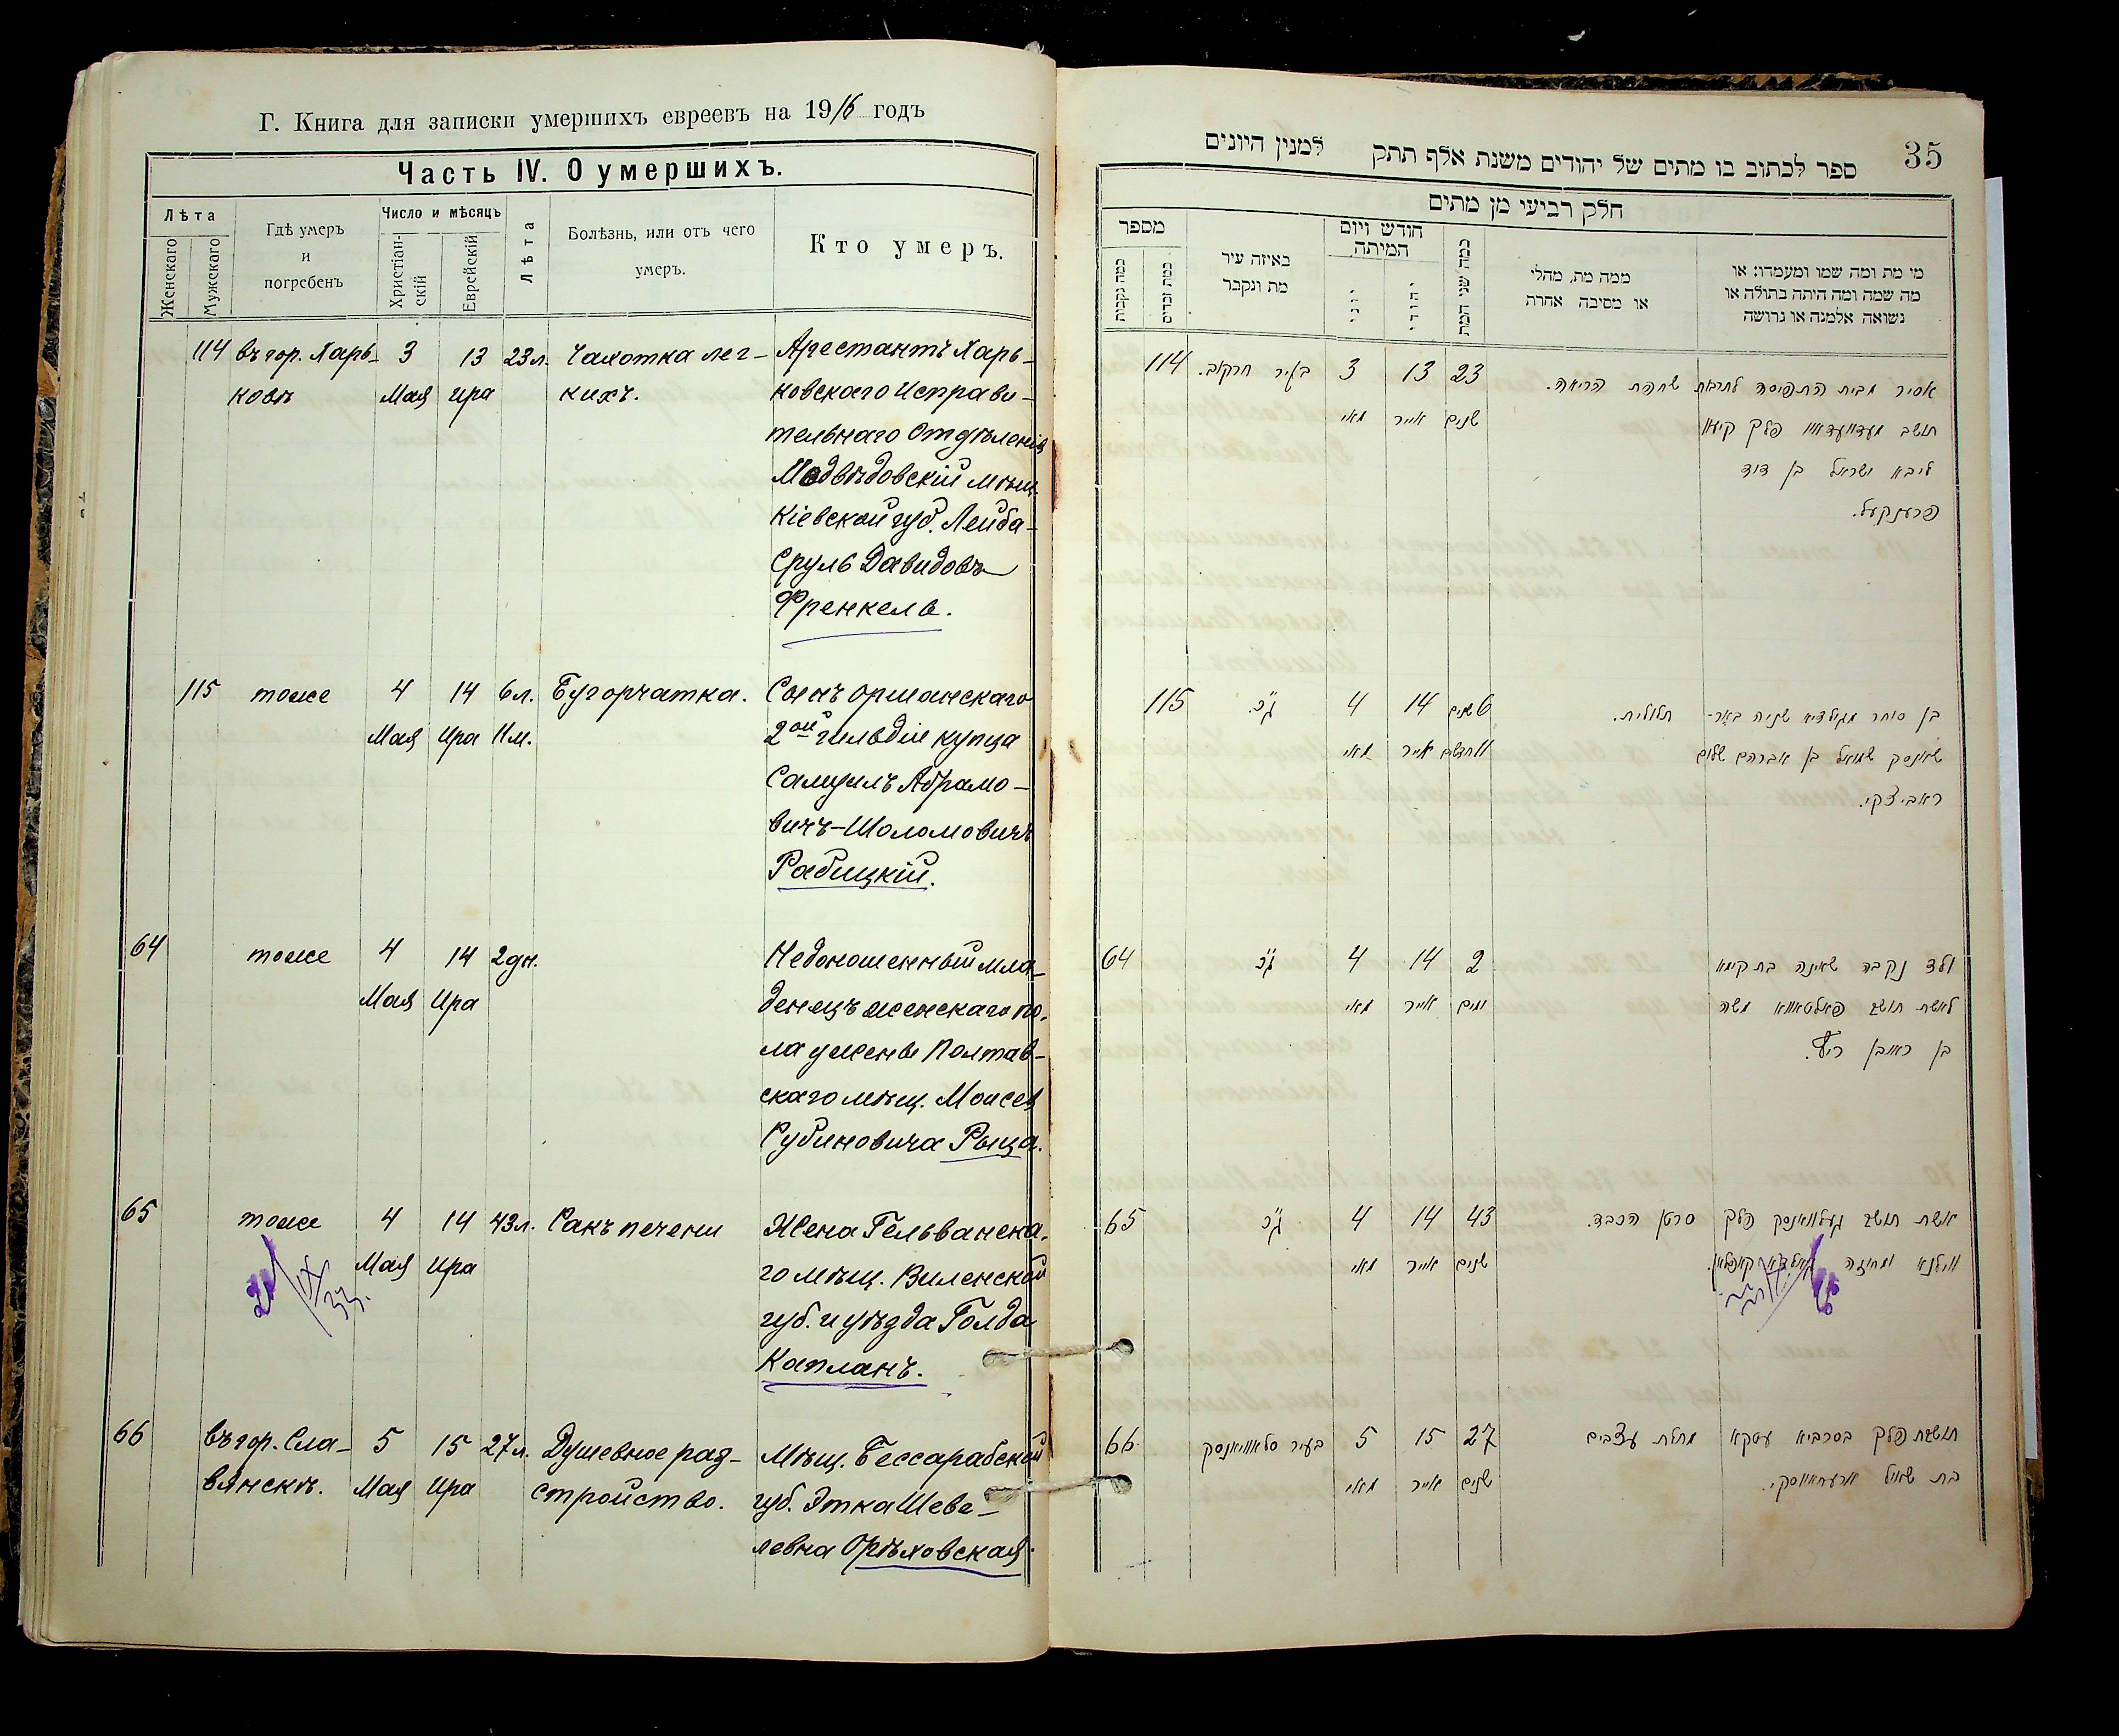 Г. Книга для записки умершихъ евреевъ на 1916 годъ
Часть IV. О умершихъ.
Лѣта
Женскаго
Мужскаго
Гдѣ умеръ
и
погребенъ
Число и мѣсяцъ
Христіан-
скій
Еврейскій
Лѣта
Болѣзнь, или отъ чего
умеръ.
Кто умеръ.
114 въ гор. Харь- 3 13 23 л. Чахотка лег- Арестантъ Харь-
ковѣ Мая Ира кихъ. ковскаго Исправи-
тельнаго Отдѣленія
Медвѣдовскій мѣщ.
Кіевской губ. Лейба-
Сруль Давидовъ
Френкель.
115 тоже 4 14 6 л. Бугорчатка. Сынъ Оршанскаго
Мая Ира 11 м. 2ой гильдіи купца
Самуилъ Абрамо-
вичъ-Шоломовичъ
Рабицкій.
64 тоже 4 14 2 дн. Недоношенный мла-
Мая Ира денецъ женскаго по-
ла у жены Полтав-
скаго мѣщ. Моисея
Рубиновича Рыца.
65 тоже 4 14 43 л. Ракъ печени Жена Гельванска-
Мая Ира го мѣщ. Виленской
губ. и уѣзда Голда
Капланъ.
66 въ гор. Сла- 5 15 27 л. Душевное раз- Мѣщ. Бессарабской
вянскѣ. Мая Ира стройство. губ. Этка Шеве-
левна Орѣховская.
35
ספר לכתוב בו מתים של יהודים משנת אלף תתק למנין היונים
חלק רביעי מן מתים
מספר
כמה נקבות
כמה זכרים
באיזה עיר
מת ונקבר
חודש ויום
המיתה
יוני
יהודי
כמה שני המת
ממה מת, מחלי
או מסיבה אחרת
מי מת ומה שמו ומעמדו: או
מה שמה ומה היתה בתולה או
נשואה אלמנה או גרושה
114 בעיר חרקוב. 3 13 23 שחפת הריאה. אסיר מבית התפיסה
מאי אייר שנים תושב פלך קיעוו
ליבא ישראל בן דוד
פרענקעל.
115 ג"כ. 4 14 6 שנים תלולית. בן סוחר מגילדיא שניה
מאי אייר שמואל בן אברהם שלום
ראביצקי.
64 ג"כ 4 14 2 ולד נקבה שאינה בת קימא
מאי אייר ימים לאשת תושב פאלטאווא משה
בן ראובן
65 ג"כ 4 14 43 סרטן הכבד. אשת תושב געלוואנסק פלך
מאי אייר שנים ווילנא ומחוזה גאלדא קאפלאן.
66 בעיר סלאוויאנסק 5 15 27 מחלת עצבים תושבת פלך בסרביא עטקא
מאי אייר שנים בת